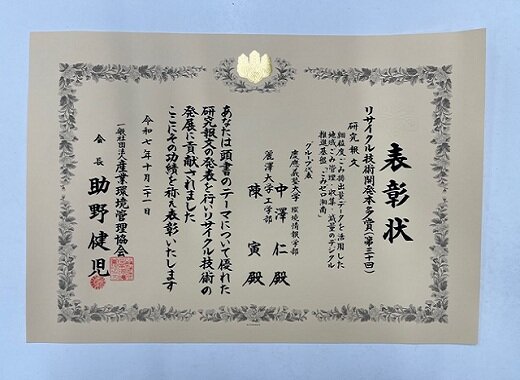 表彰状
リサイクル技術開発本多賞(第三十回)
研究報文
細粒度ごみ排出量データを活用した
地域ごみ管理・収集・減量のデジタル
推進基盤「ごみゼロ湘南」
グループ代表
慶應義塾大学 環境情報学部
中澤 仁 殿
麗澤大学 工学部
陳 寅 殿
あなたは頭書のテーマについて優れた
研究報文の発表を行いリサイクル技術の
発展に貢献されました
ここにその功績を称え表彰いたします
令和七年十月二十一日
一般社団法人産業環境管理協会
会長 助野健児